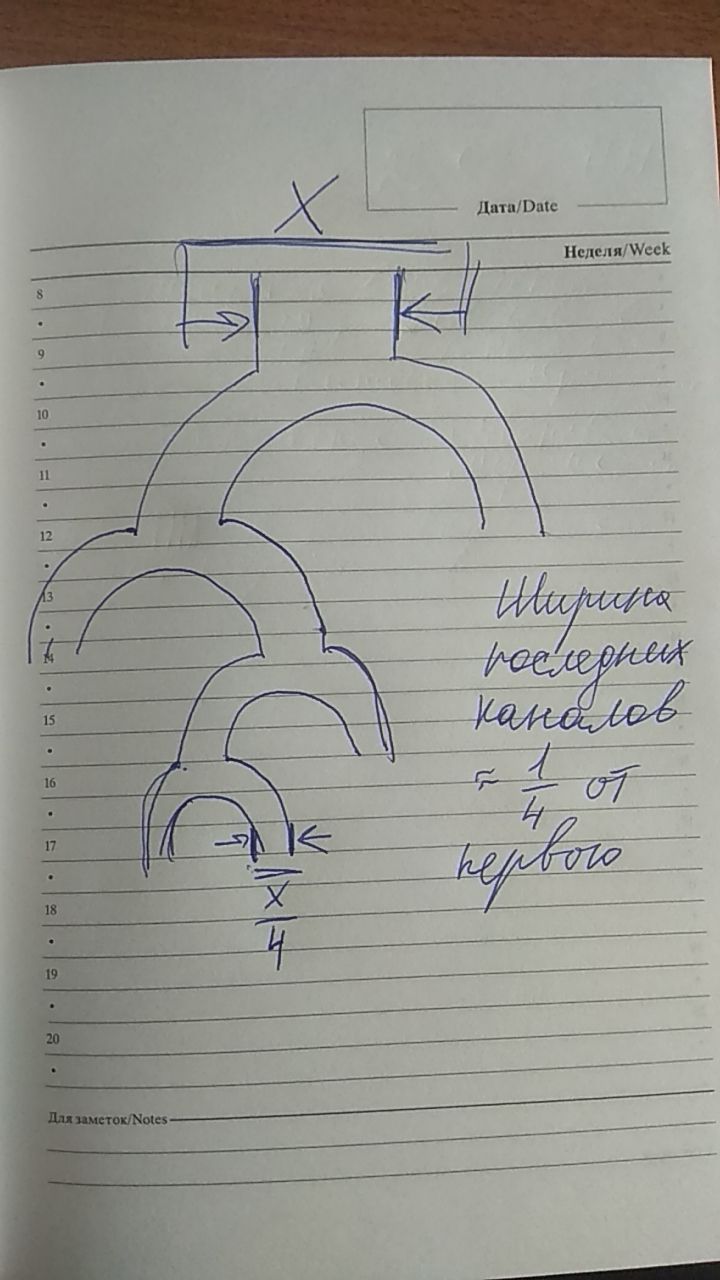 Дата/Date
X
Неделя/Week
8
9
10
11
12
13
14
15
16
17
18
19
20
Ширина
последних
каналов
≈ 1/4 от
первого
X/4
Для заметок/Notes